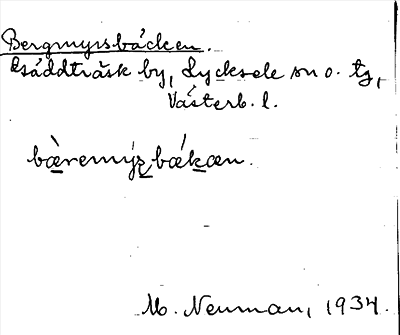 Bergmyrsbäcken.
Gäddträsk by, Lycksele sn o. tg,
Västerb. l.
bæ̀remýrz̨bækæn.
M. Neuman, 1934.